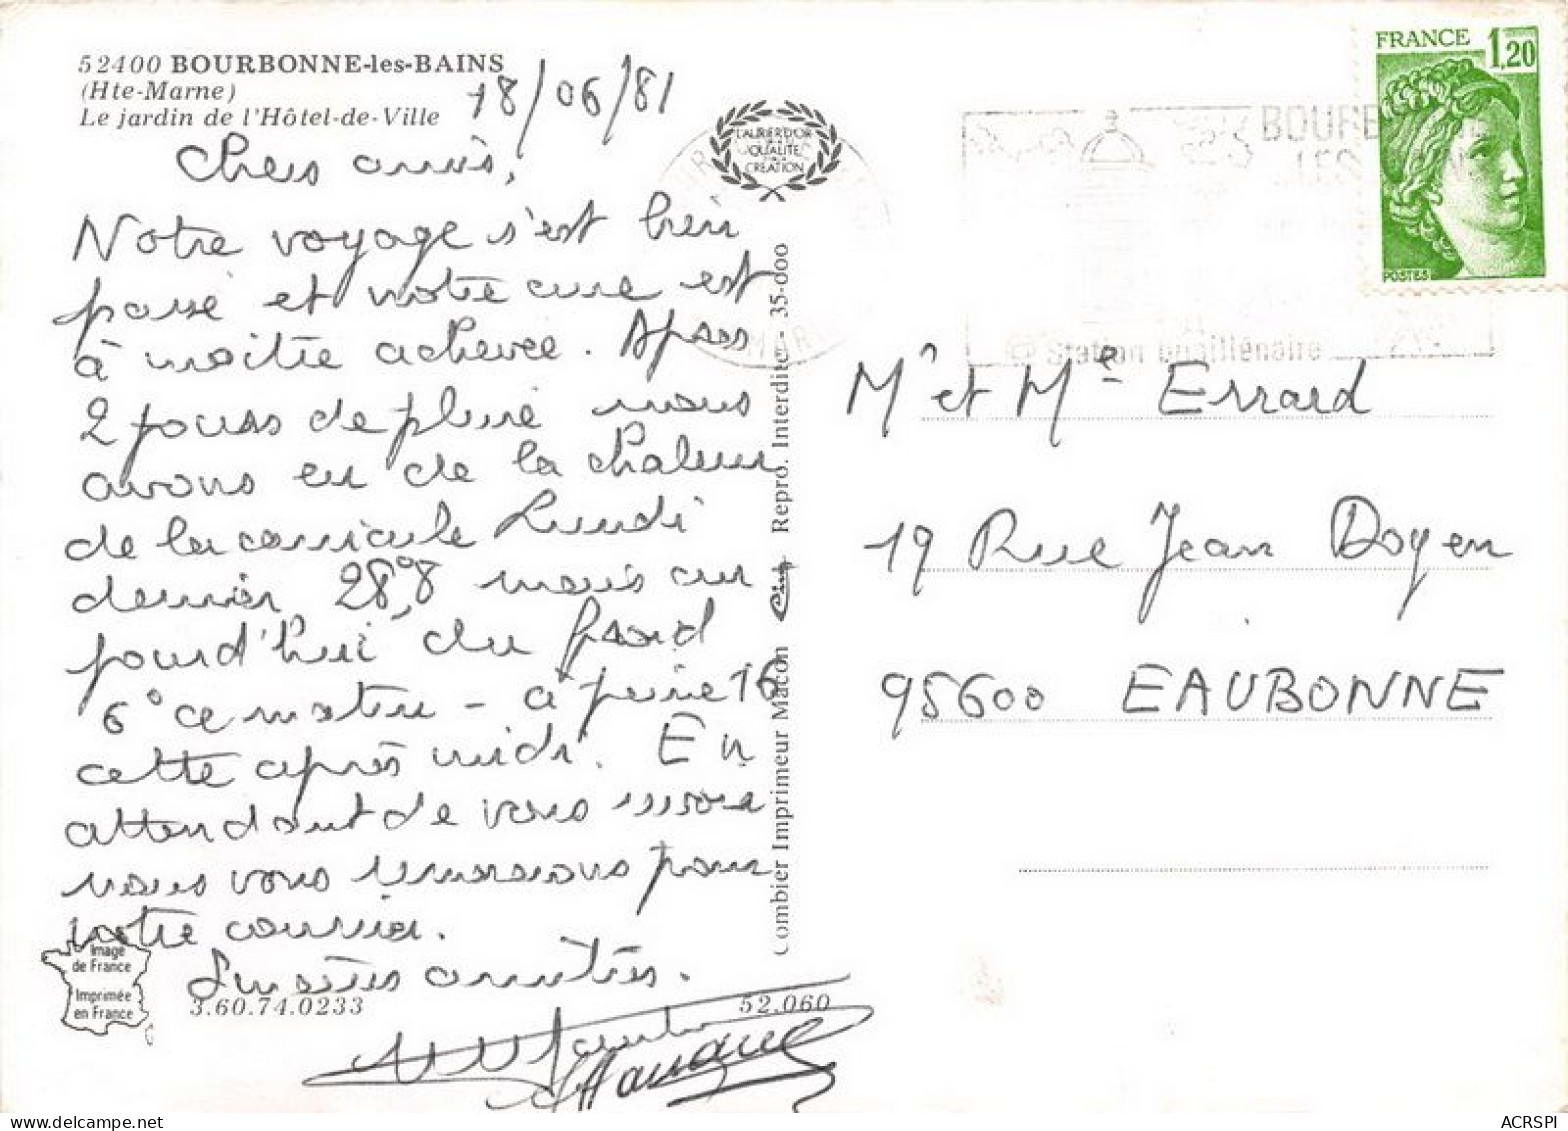 52400 BOURBONNE-les-BAINS
(Hte-Marne)
Le jardin de l'Hôtel-de-Ville
18/06/81
Chers amis,
Notre voyage s'est bien
passé et notre cure est
à moitié achevée. Après
2 jours de pluie nous
avons eu de la chaleur
de la canicule Lundi
dernier 28°,8 mais au
jourd'hui du froid
6° ce matin - à peine 16
cette après midi. En
attendant de vous
nous vous remercions pour
votre courrier.
Sincères amitiés.
LAURIER D'OR
QUALITÉ
CRÉATION
Combier Imprimeur Macon Cim Repro. Interdite - 35-000
Image
de France
Imprimée
en France
3.60.74.0233
52.060
FRANCE 1,20
POSTES
BOURB
LES
Station
Mr et Me Errard
19 Rue Jean Doyen
95600 EAUBONNE
ACRSPI